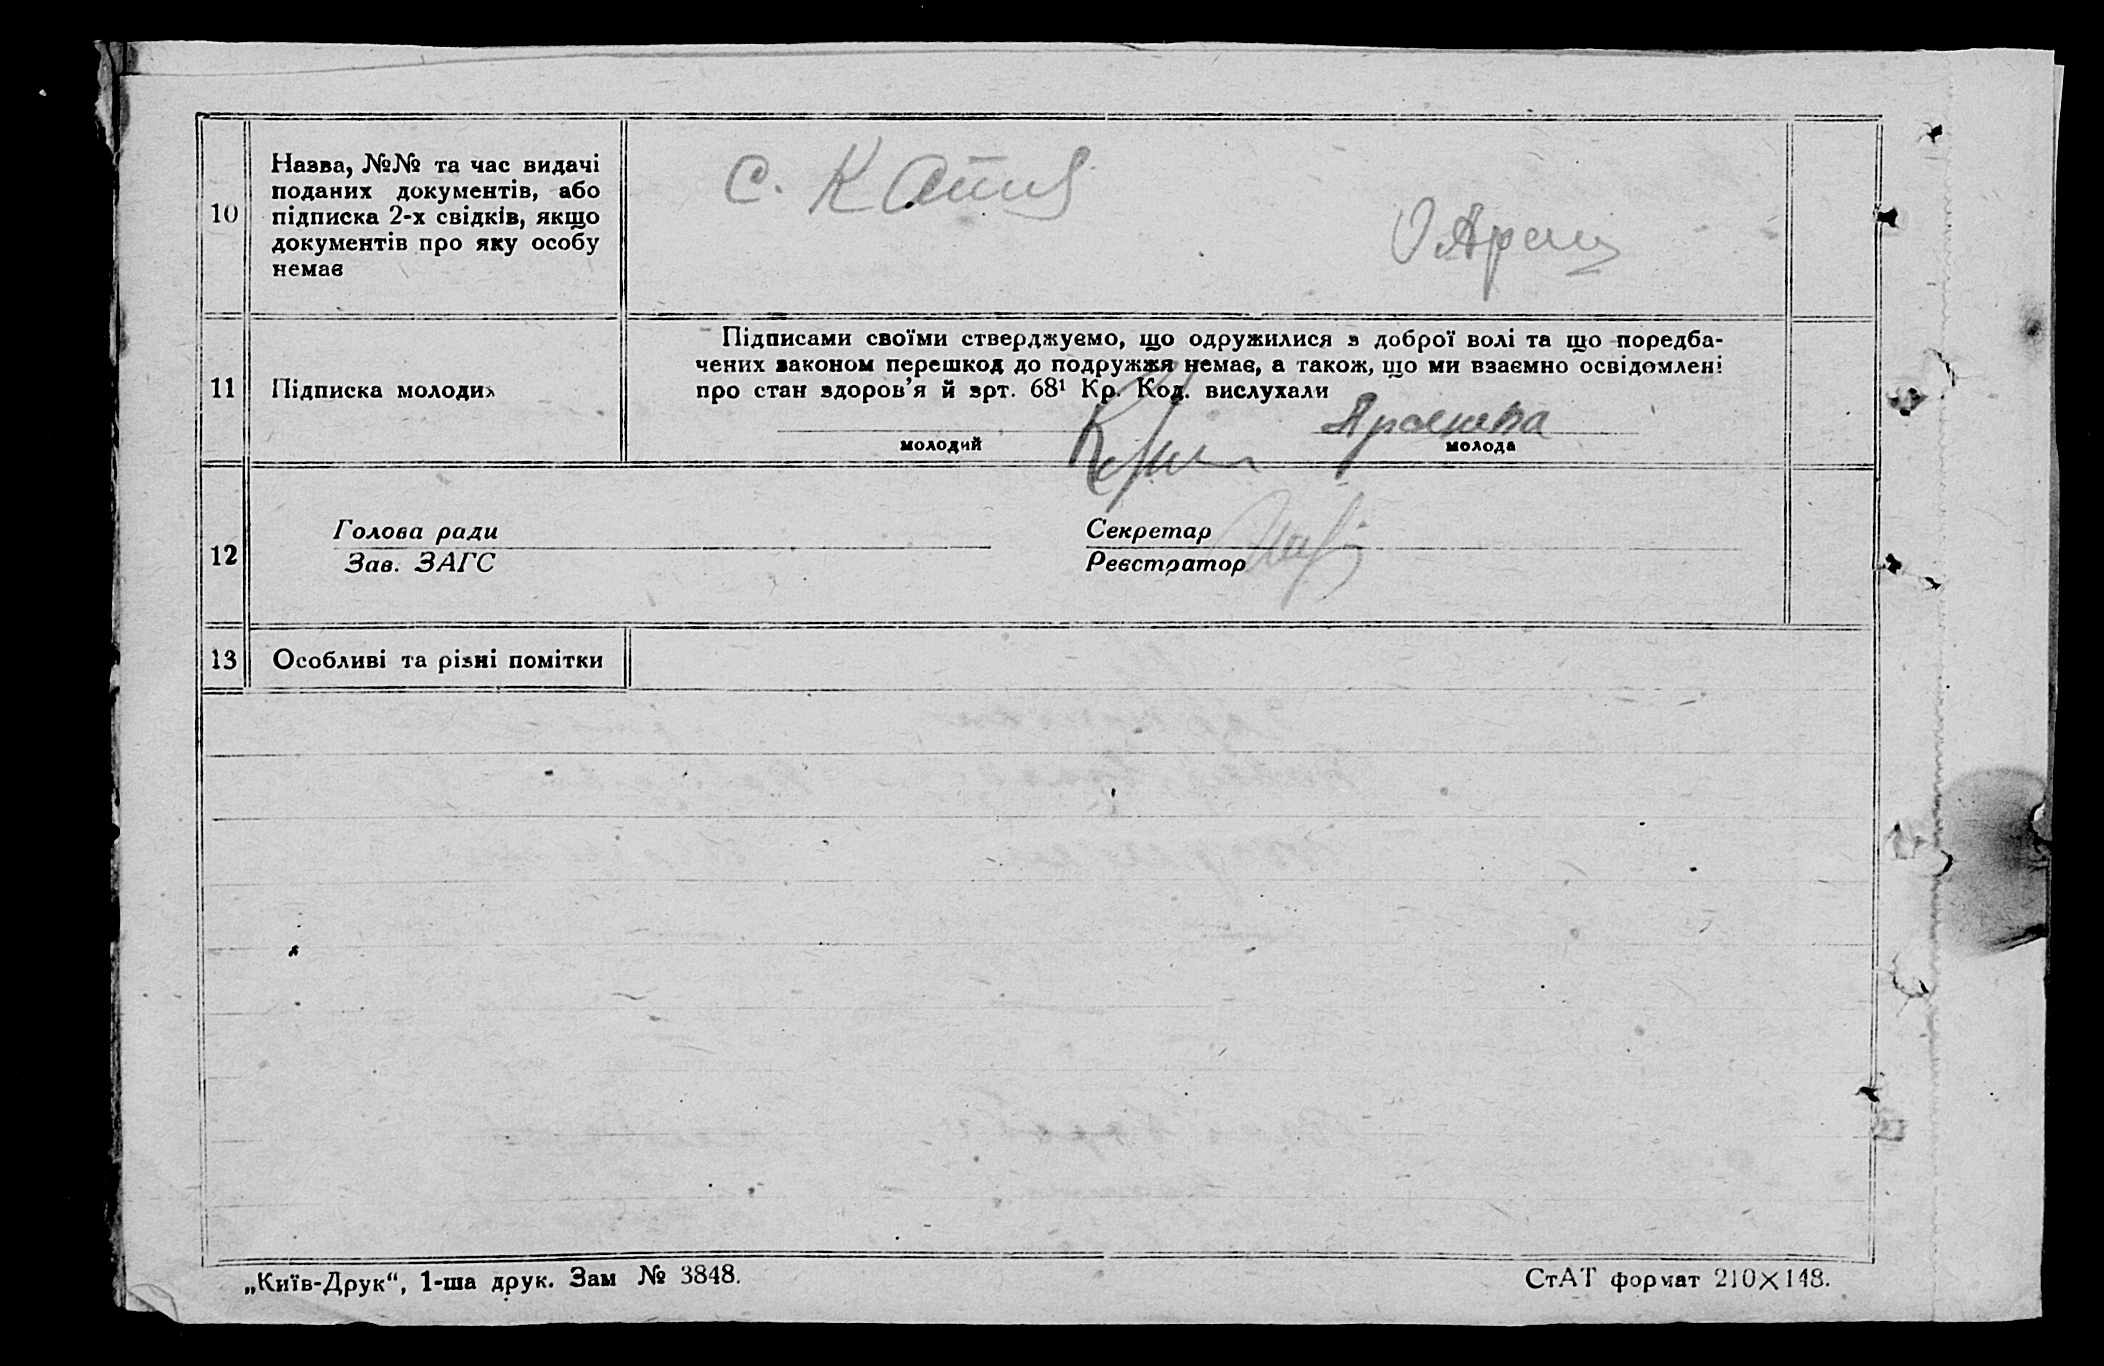 10
Назва, №№ та час видачі
поданих документів, або
підписка 2-х свідків, якщо
документів про яку особу
немає
С.
11
Підписка молодих
Підписами своїми стверджуємо, що одружилися з доброї волі та що поредба-
чених законом перешкод до подружжя немає, а також, що ми взаємно освідомлені
про стан здоров’я й зрт. 68¹ Кр. Код. вислухали
молодий
молода
12
Голова ради
Зав. ЗАГС
Секретар
Реєстратор
13
Особливі та різні помітки
„Київ-Друк“, 1-ша друк. Зам № 3848.
СтАТ формат 210×148.